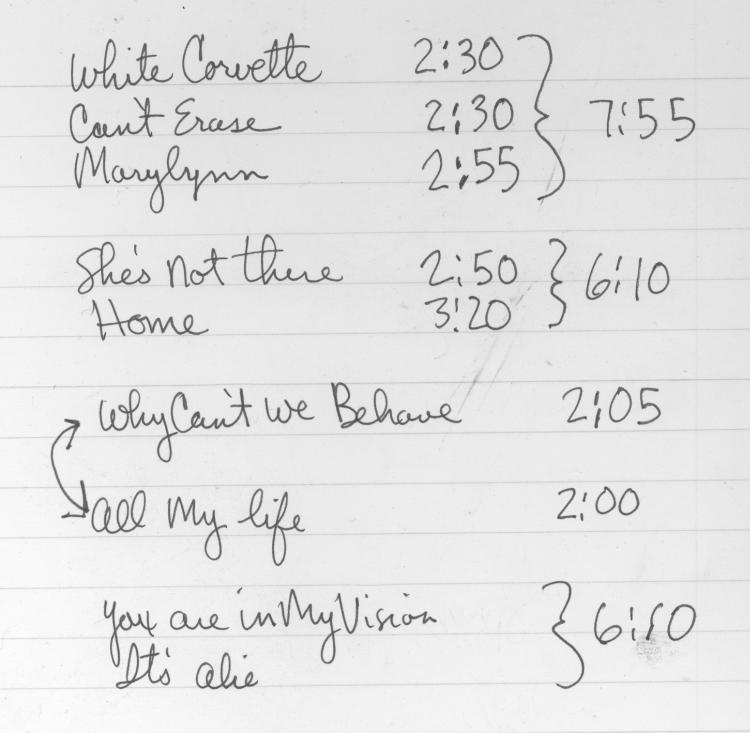 White Corvette 2:30
Can't Erase 2:30 } 7:55
Marylynn 2:55
She's Not there 2:50 } 6:10
Home 3:20
Why Can't We Behave 2:05
All My life 2:00
you are in My Vision } 6:10
It's a lie